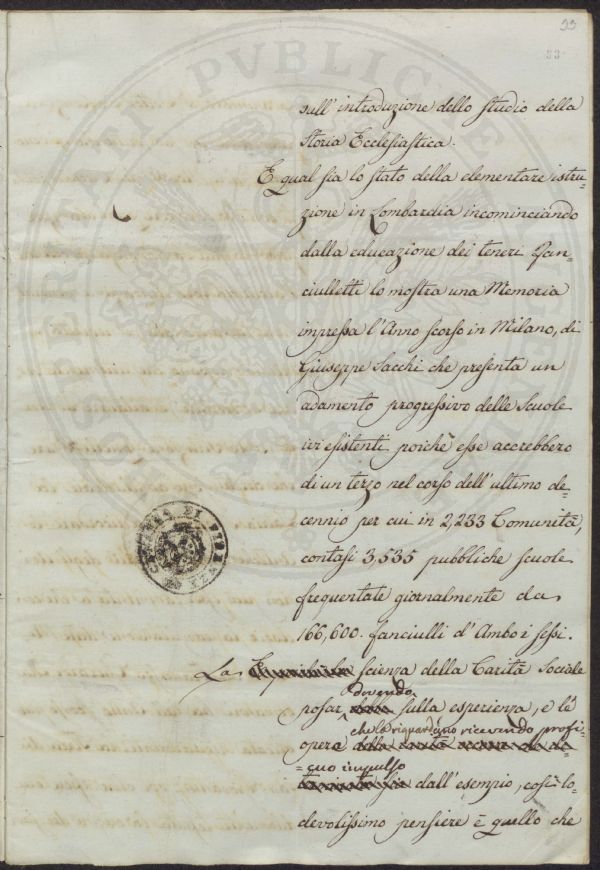 33
33
sull'introduzione dello studio della
Storia Ecclesiastica.
E qual sia lo stato della elementare istru-
zione in Lombardia incominciando
dalla educazione dei teneri fan-
ciulletti lo mostra una Memoria
impressa l'Anno scorso in Milano, di
Giuseppe Sacchi che presenta un
adamento progressivo delle Scuole
ivi esistenti poichè esse accrebbero
di un terzo nel corso dell'ultimo de-
cennio per cui in 2,233 Comunità,
contasi 3,535 pubbliche scuole
frequentate giornalmente da
166,600. fanciulli d'Ambo i sessi.
La scienza della Carità Sociale
dovendo
posar sulla esperienza, e le
che la riguardano ricevendo profi-
opere
=cuo impulso
dall'esempio, così lo-
devolissimo pensiere è quello che